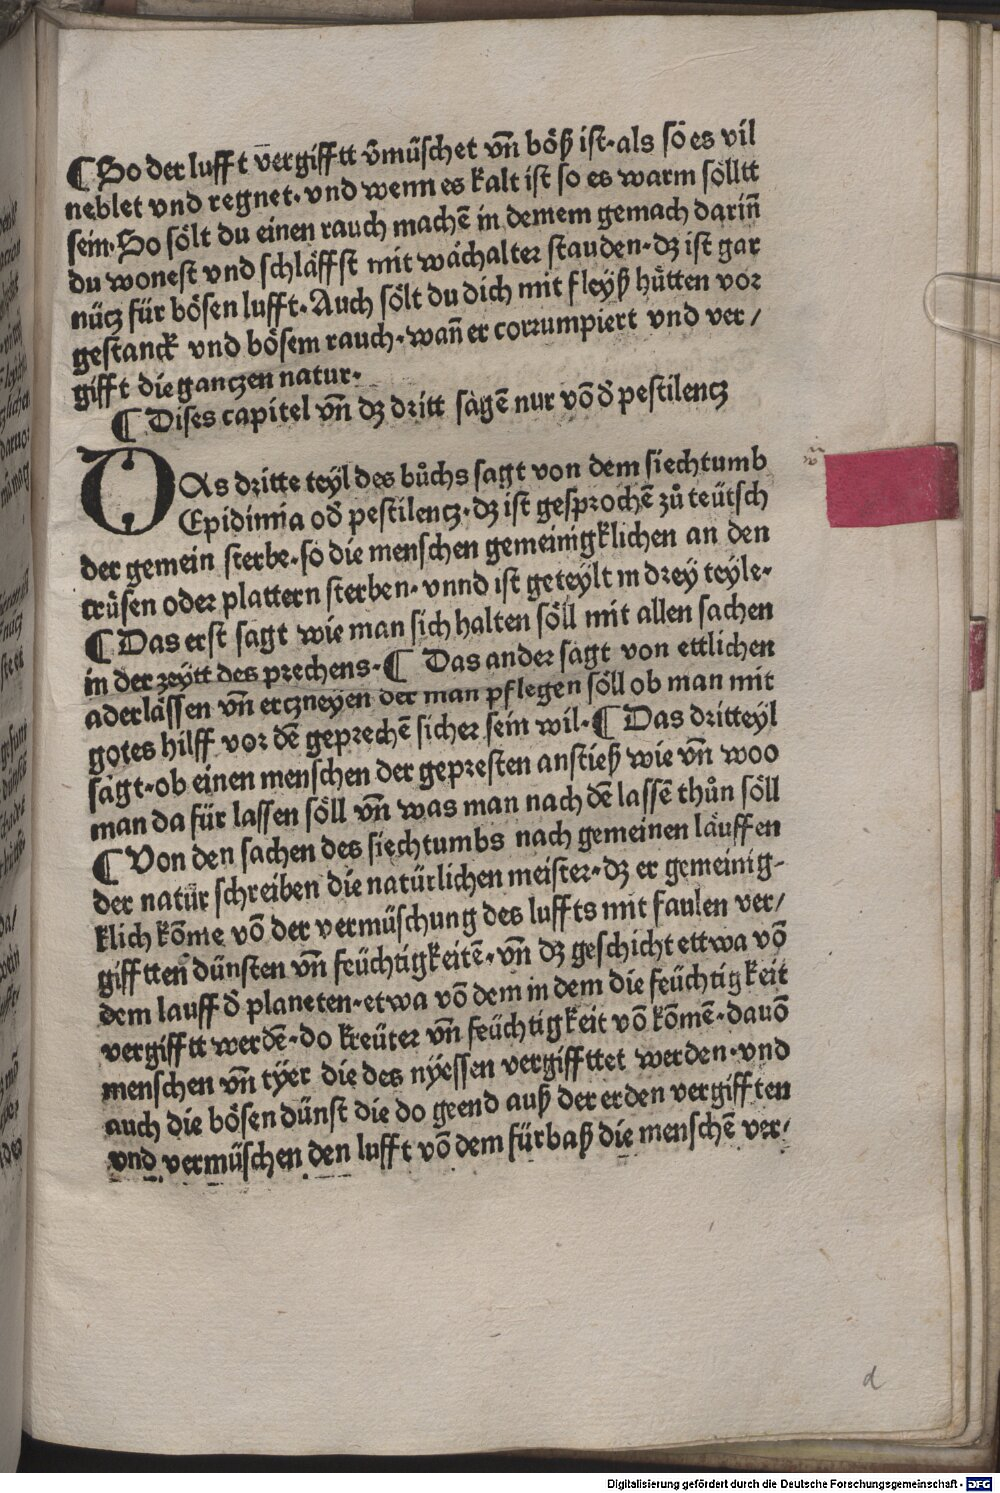 ¶ So der lufft vergifftt v̄mu̇schet vn̄ bo̎ß ist· als so̎ es vil
neblet vnd regnet· vnd wenn es kalt ist so es warm so̎lltt
sein· So so̎lt du einen rauch machē in deinem gemach darin̄
du wonest vnd schla̎ffst mit wa̎chalter stauden· dz ist gar
nücz für bo̎sen lufft· Auch so̎lt du dich mit fleyß hu̎tten vor
gestanck vnd bo̎sem rauch· wan̄ er corrumpiert vnd ver/
gifft die ganczen natur·
¶ Dises capitel vn̄ dz dritt sàgē nur vō d̄ pestilencz
DAs dritte teyl des bůchs sagt von dem siechtumb
Epidimia od̄ pestilencz· dz ist gesprochē zů teütsch
der gemein sterbe· so die menschen gemeinigklichen an den
tru̎sen oder plattern sterben· vnnd ist geteylt in drey teyle·
¶ Das erst sagt wie man sich halten so̎ll mit allen sachen
in der zeytt des prechens· ¶ Das ander sàgt von ettlichen
aderla̎ssen vn̄ erczneyen der man pflegen so̎ll ob man mit
gotes hilff vor dē geprechē sicher sein wil· ¶ Das dritteyl
sàgt· ob einen menschen der gepresten anstieß wie vn̄ woo
man da für lassen so̎ll vn̄ was man nach dē lassē thůn so̎ll
¶ Von den sachen des siechtumbs nach gemeinen la̎uffen
der natür schreiben die natürlichen meister· dz er gemeinig-
klich kōme vō der vermu̎schung des luffts mit faulen ver/
gifftten dünsten vn̄ feüchtigkeitē· vn̄ dz geschicht ettwa vō
dem lauff d̄ planeten· etwa vō dem in dem die feüchtigkeit
vergifftt werdē· do kreüter vn̄ feüchtigkeit vō kōmē· dauō
menschen vn̄ tÿer die des nÿessen vergiffttet werden· vnd
auch die bo̎sen dünst die do geend auß der erden vergifften
vnd vermu̎schen den lufft vō dem fürbaß die menschē ver/
d
Digitalisierung gefördert durch die Deutsche Forschungsgemeinschaft - DFG